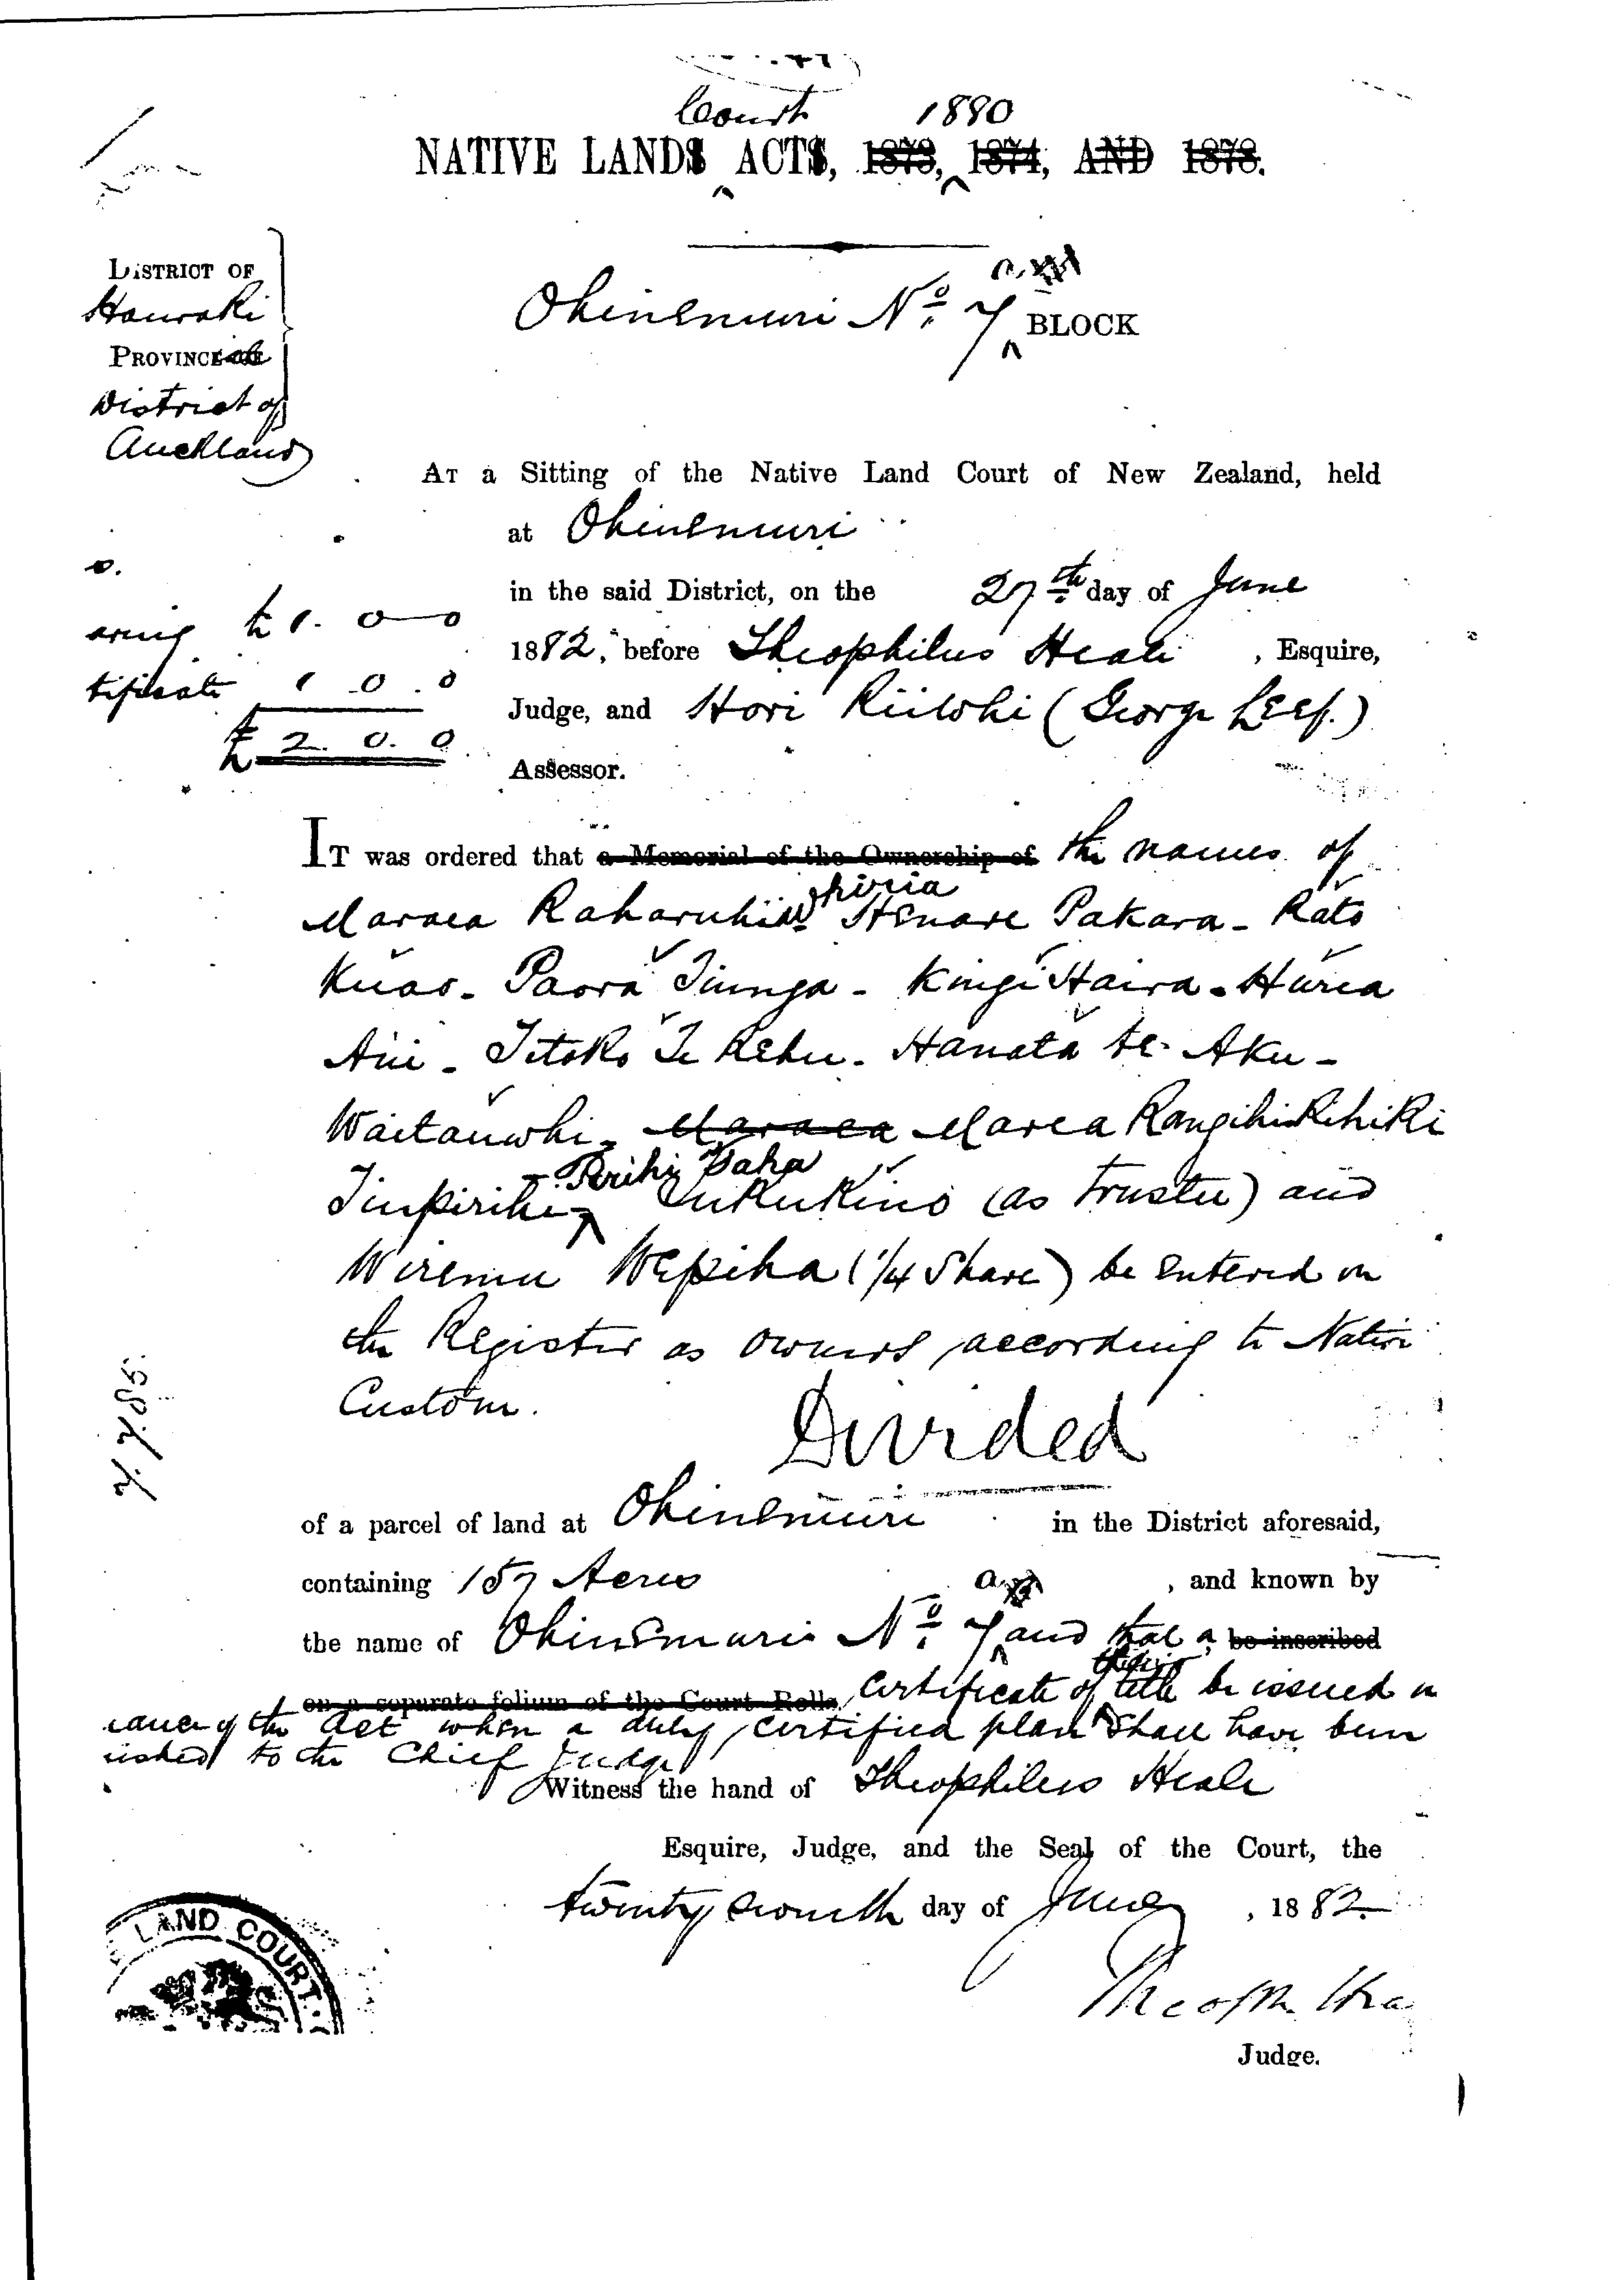 Court 1880
NATIVE LANDS ACTS, 1873, 1874, AND 1878.
DISTRICT OF
Hauraki
PROVINCE
District of
Auckland
Ohinemuri No. 7 a BLOCK
AT a Sitting of the Native Land Court of New Zealand, held
at Ohinemuri
in the said District, on the 27th day of June
1882, before Theophilus Heale, Esquire,
Judge, and Hori Riiwhi (George Leef.)
Assessor.
aring £1. 0 0
tificate 1 . 0 . 0
£ 2. 0. 0
IT was ordered that a Memorial of the Ownership of the names of
Maraea Henare Pakara - Rato
Kuao - Paora Tiunga - Kingi Haira - Huria
Ani - Titoko Te Kehu - Hanata te Aku -
Waitauwhi - Maraea Marea Rangihikihiki
Tinpirihi - Pirihi Paha Tukukino (as Trustee) and
Wiremu Wepiha (1/4 Share) be entered on
the Register as owners according to Native
Custom.
Divided
7.7.85.
of a parcel of land at Ohinemuri in the District aforesaid,
containing 157 Acres, and known by
the name of Ohinemuri No. 7 a and that a be inscribed
on a separate folium of the Court Rolls, Certificate of their title be issued in
uance of the Act when a duly certified plan shall have been
nished to the Chief Judge
Witness the hand of Theophilus Heale
Esquire, Judge, and the Seal of the Court, the
twenty seventh day of June, 1882
LAND COURT
Theoph. Hea
Judge.